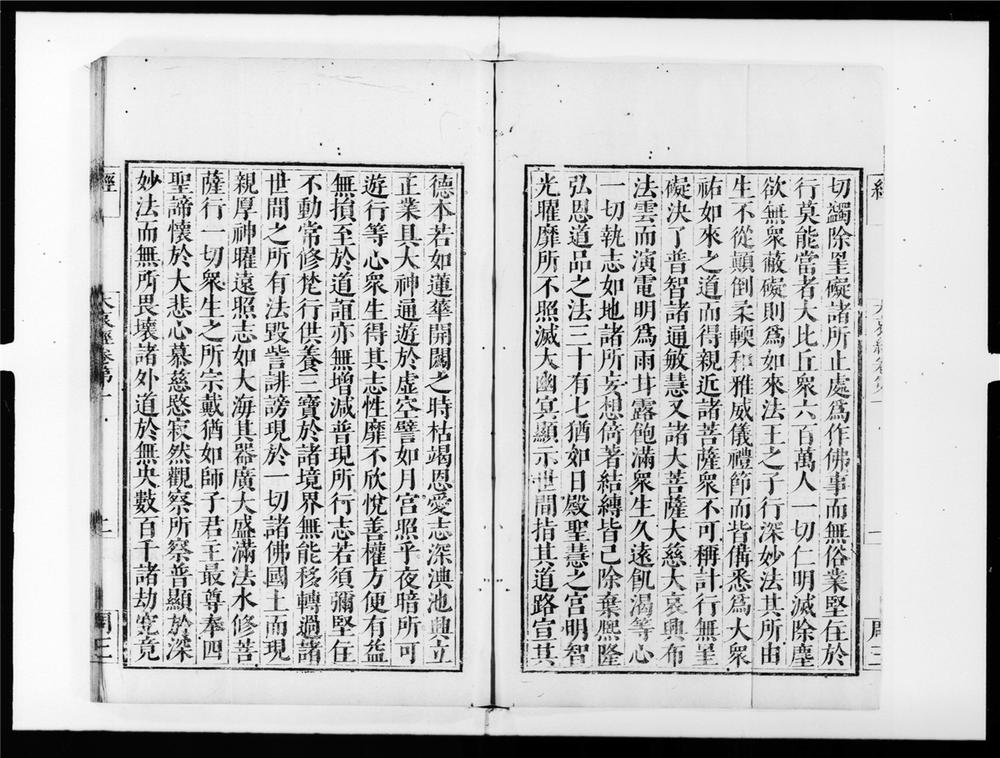 經
大哀經卷第一
一
周三
切蠲除罣礙諸所止處爲作佛事而無俗業堅住於
行莫能當者大比丘眾六百萬人一切仁明滅除塵
欲無眾蔽礙則爲如來法王之子行深妙法其所由
生不從顛倒柔輭和雅威儀禮節而皆備悉爲大眾
祐如來之道而得親近諸菩薩眾不可稱計行無罣
礙決了普智諸通敏慧又諸大菩薩大慈大哀興布
法雲而演電明爲雨甘露飽滿眾生久遠飢渴等心
一切執志如地諸所妄想倚著結縛皆已除棄熙隆
弘恩道品之法三十有七猶如日殿聖慧之宮明智
光曜靡所不照滅大幽冥顯示世間指其道路宣其
德本若如蓮華開闢之時枯竭恩愛志深淵池興立
正業具大神通遊於虛空譬如月宮照乎夜暗所可
遊行等心眾生得其志性靡不欣悅善權方便有益
無損至於道誼亦無增減普現所行志若須彌堅住
不動常修梵行供養三寶於諸境界無能移轉過諸
世間之所有法毀訾誹謗現於一切諸佛國土而現
親厚神曜遠照志如大海其器廣大盛滿法水修菩
薩行一切眾生之所宗戴猶如師子君王最尊奉四
聖諦懷於大悲心慕慈愍寂然觀察所察普顯於深
妙法而無所畏壞諸外道於無央數百千諸劫究竟
經
大哀經卷第一
二
周三